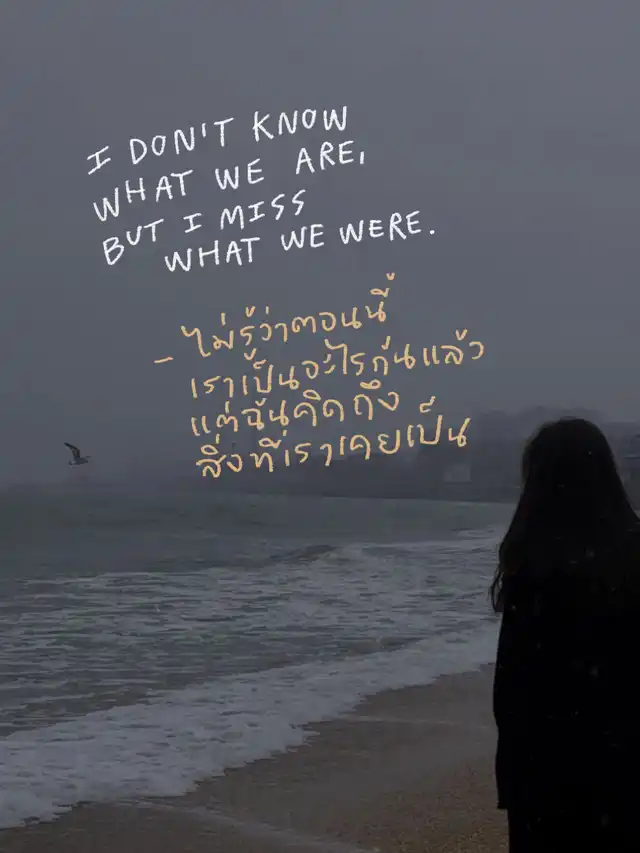 I DON'T KNOW
WHAT WE ARE,
BUT I MISS
WHAT WE WERE.
- ไม่รู้ว่าตอนนี้
เราเป็นอะไรกันแล้ว
แต่ฉันคิดถึง
สิ่งที่เราเคยเป็น